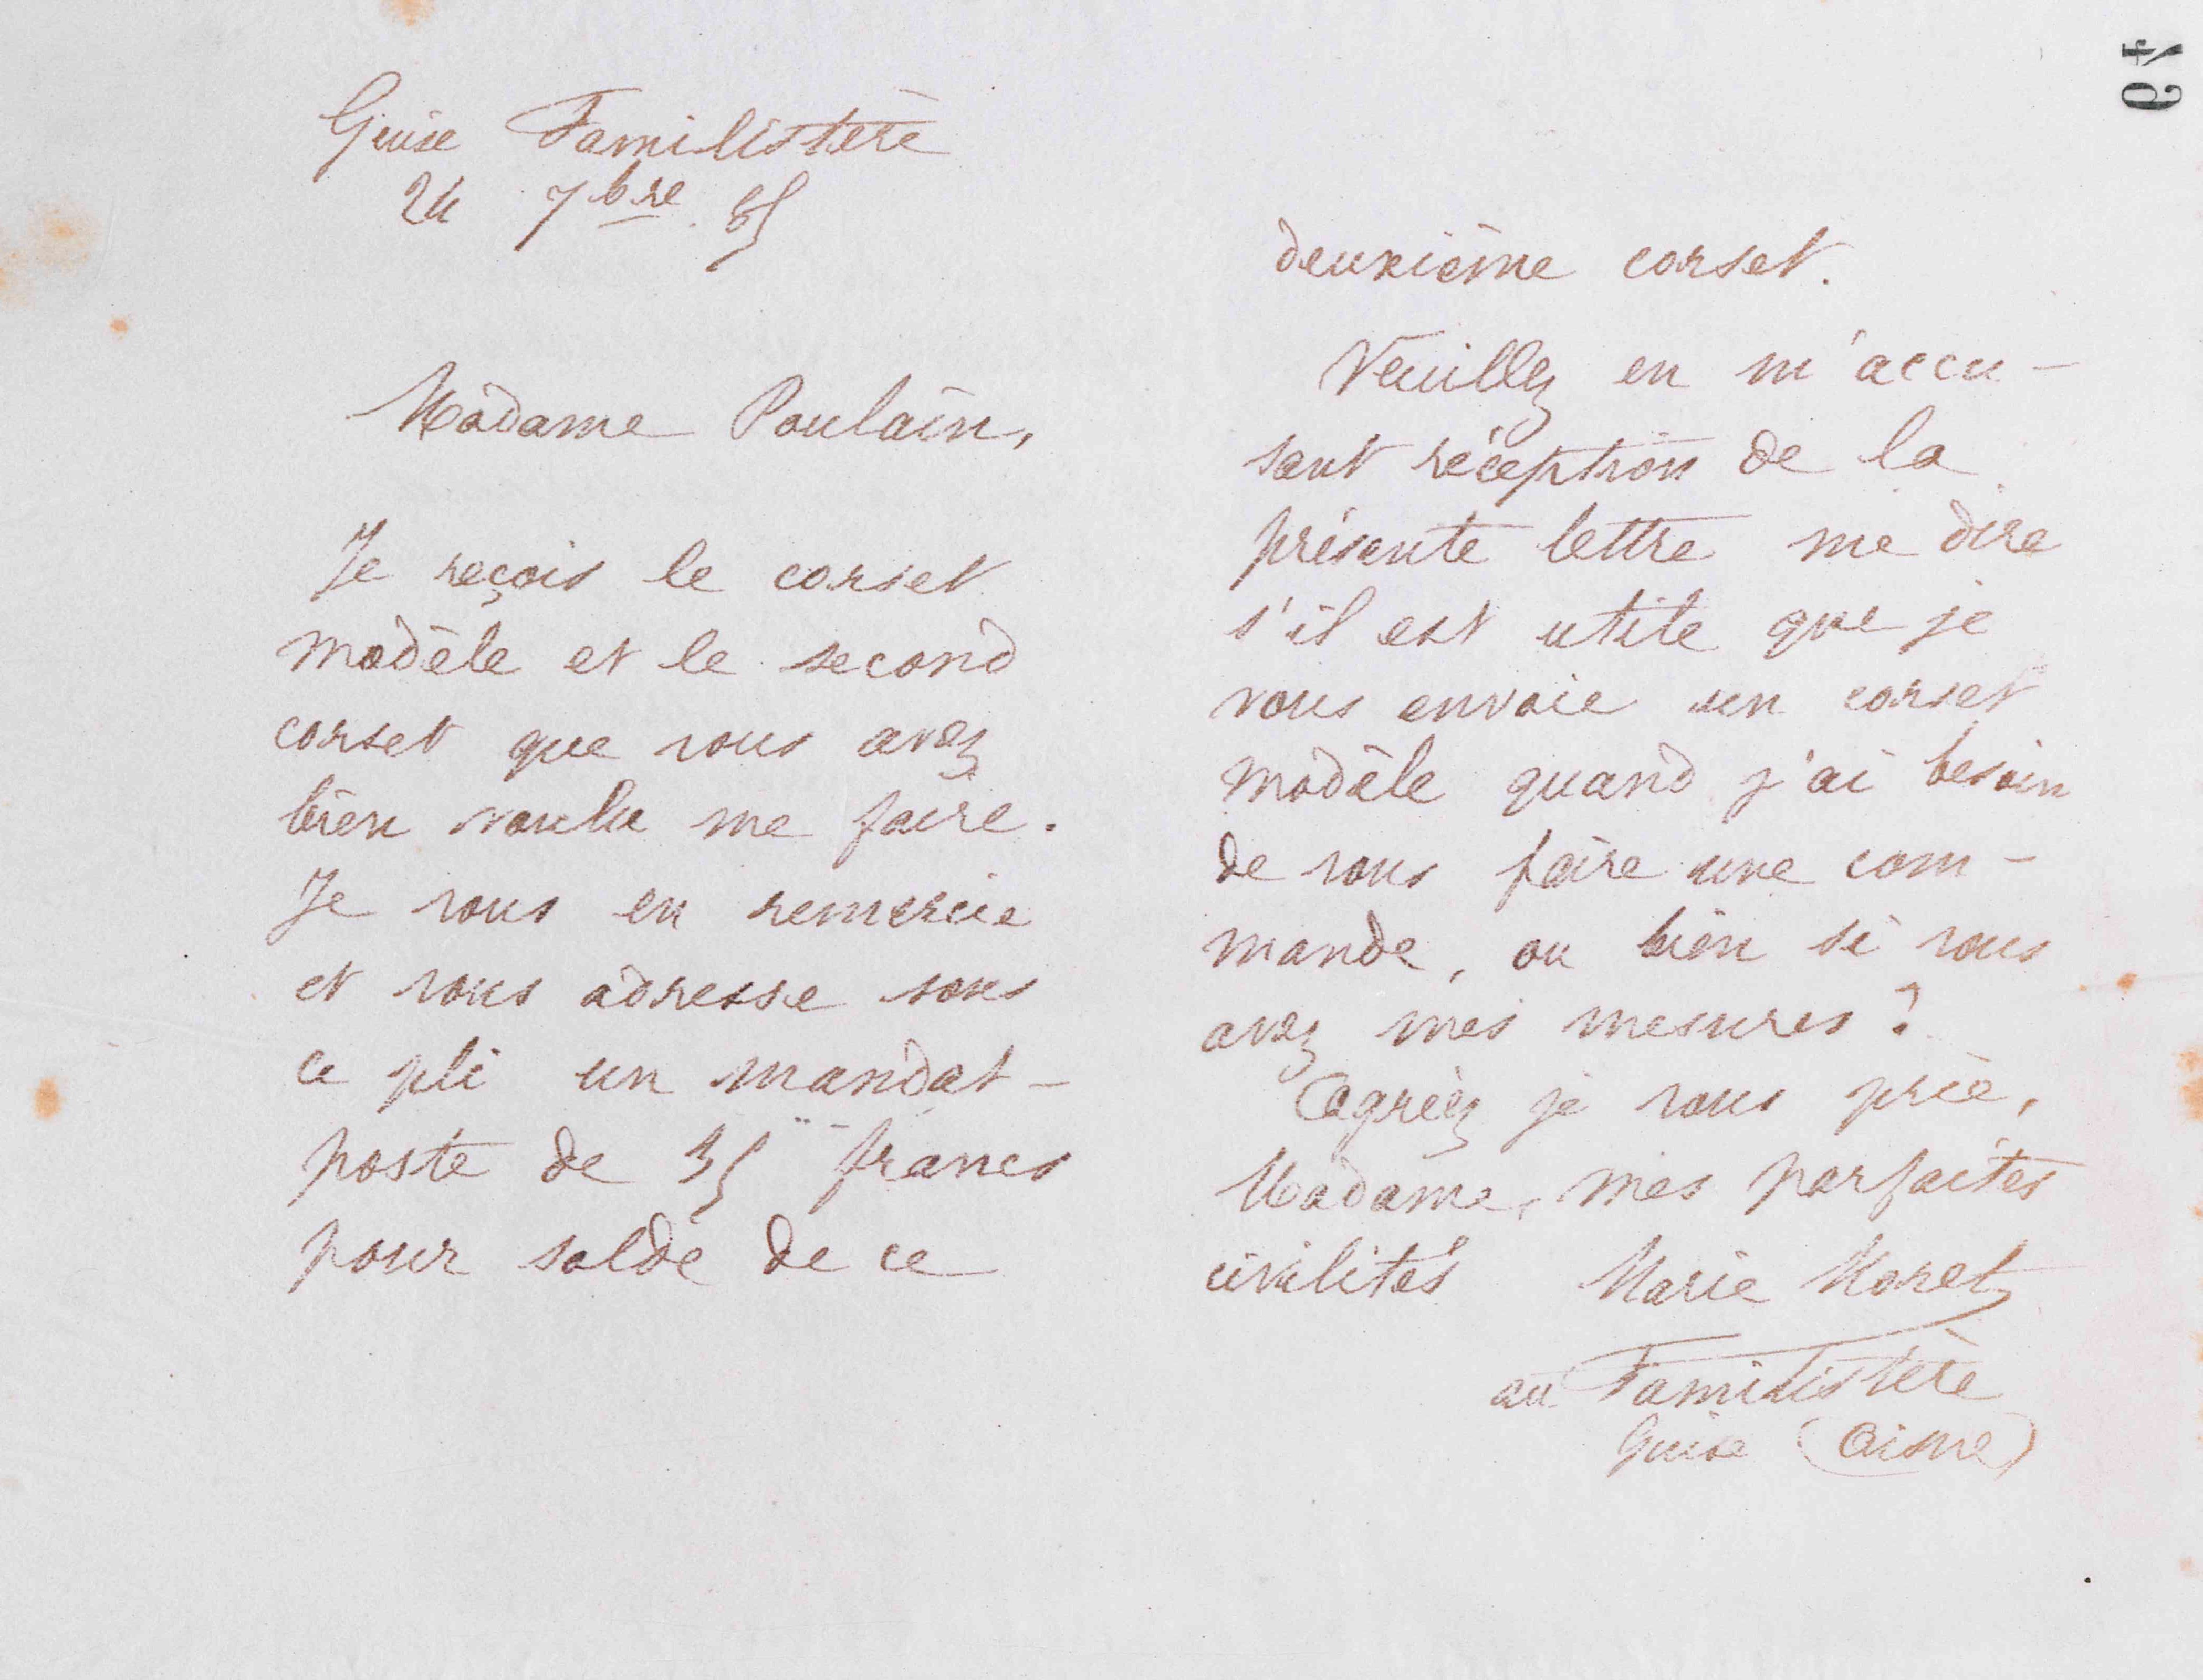 49
Guise Familistère
24 7bre 85
Madame Poulain,
Je reçois le corset
modèle et le second
corset que vous avez
bien voulu me faire.
Je vous en remercie
et vous adresse sous
ce pli un mandat-
poste de 35 francs
pour solde de ce
deuxième corset.
Veuillez en m'accu-
sant réception de la
présente lettre me dire
s'il est utile que je
vous envoie un corset
modèle quand j'ai besoin
de vous faire une com-
mande, ou bien si vous
avez mes mesures ?
Agréez je vous prie,
Madame, mes parfaites
civilités Marie Moret
au Familistère
Guise (Aisne)